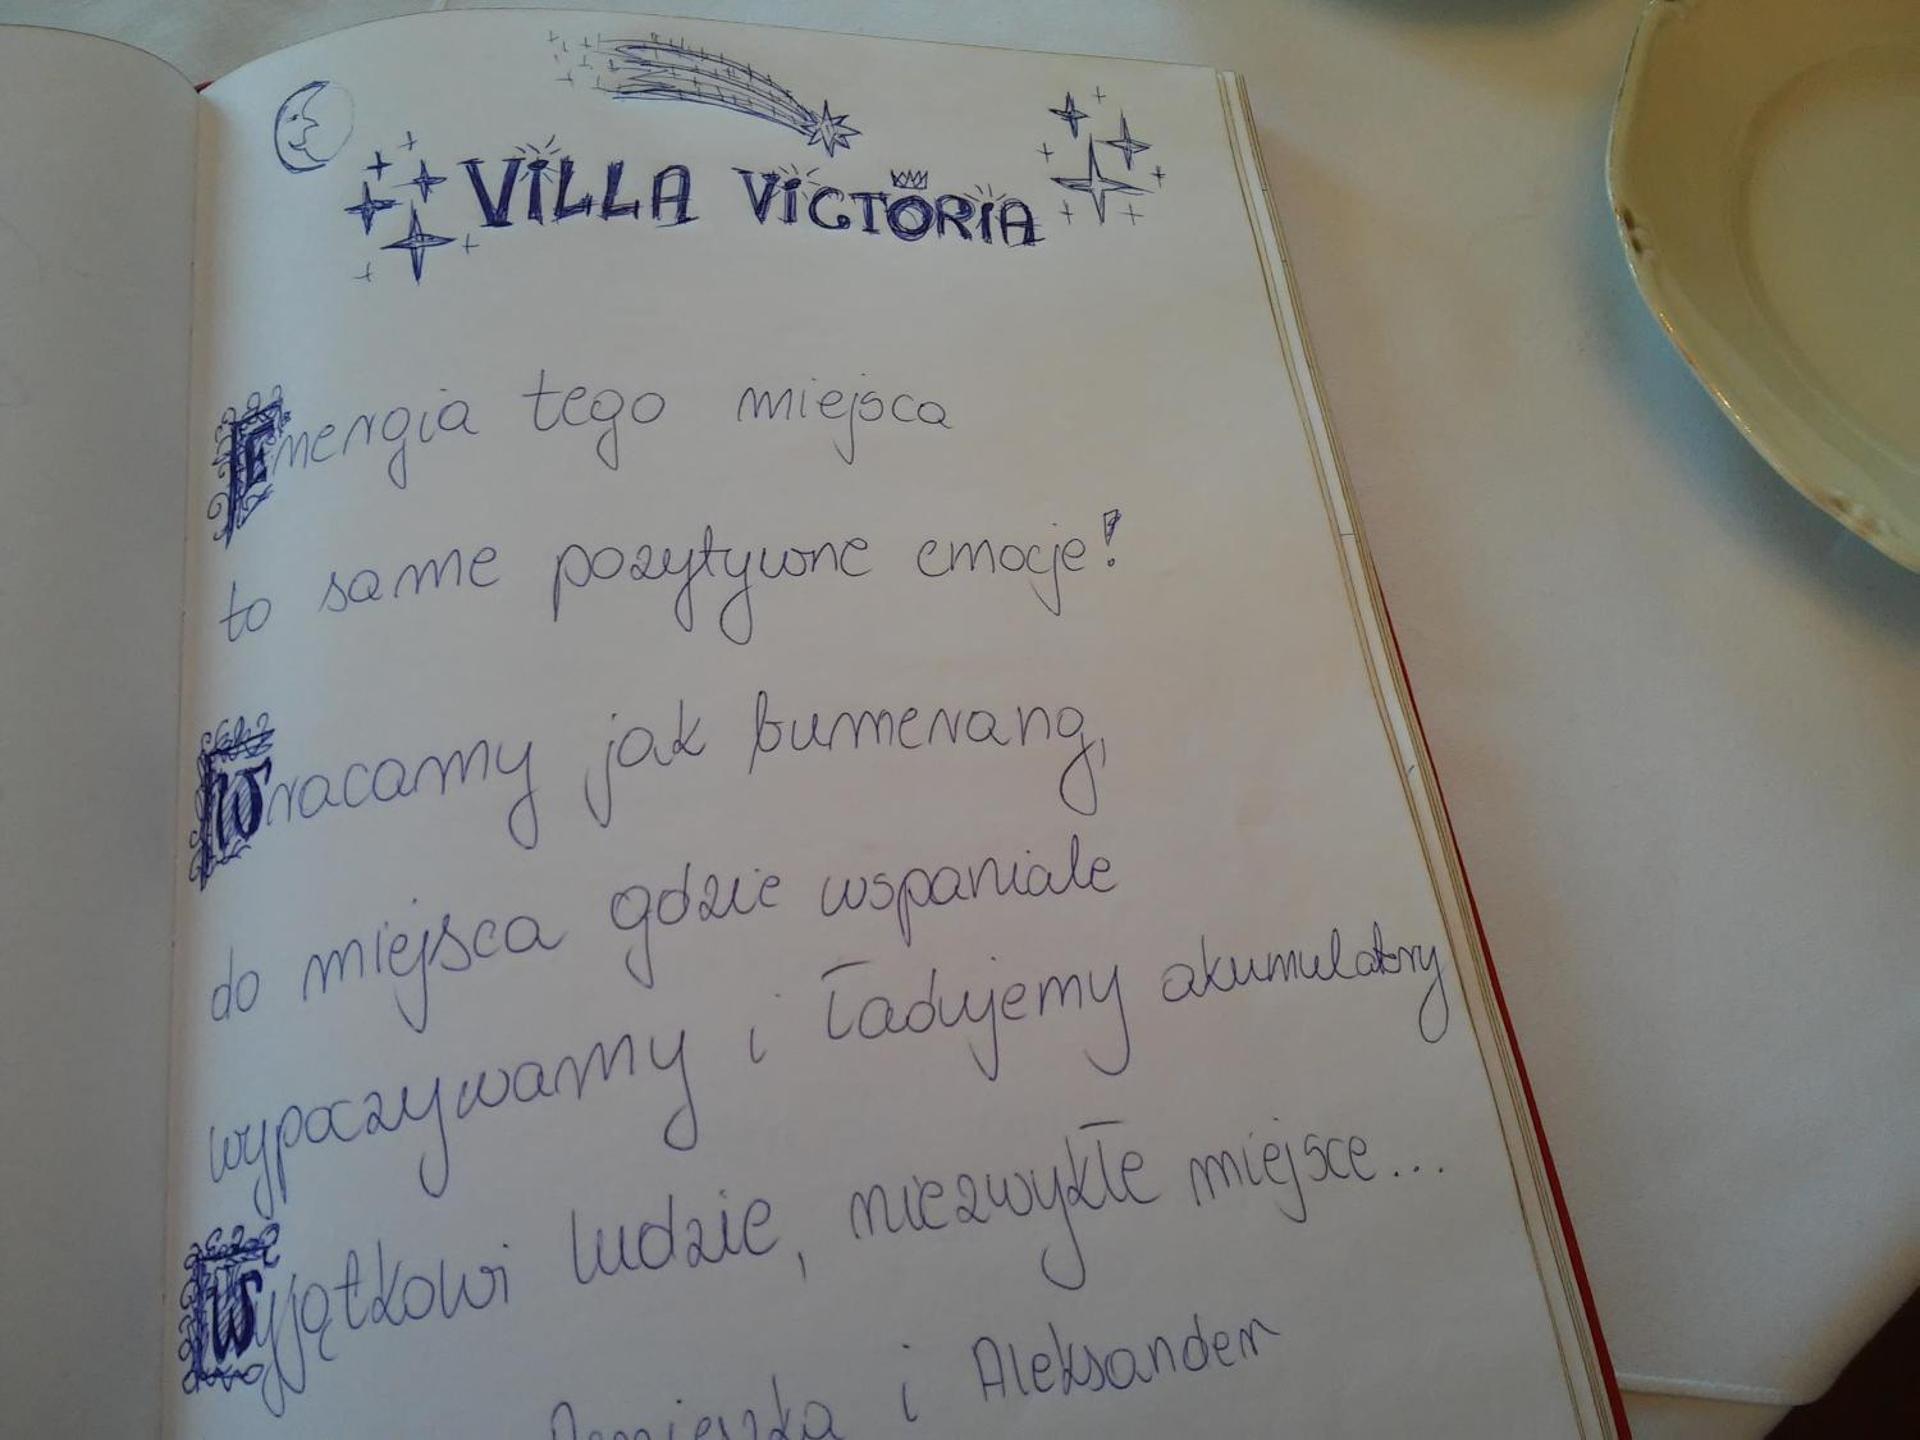 VILLA VICTORIA
Energia tego miejsca
to same pozytywne emocje!
Wracamy jak bumerang,
do miejsca gdzie wspaniale
wypoczywamy i ładujemy akumulatory
Wyjątkowi ludzie, niezwykłe miejsce...
Agnieszka i Aleksander